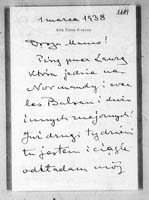 1 marca 1938
Drogi Mamo!
Piszę przez Laurę
która jedzie na
Normandy i
les Balsan i
innych znajomych!
Już drugi tydzień
tu jestem i ciągle
odkładam mój